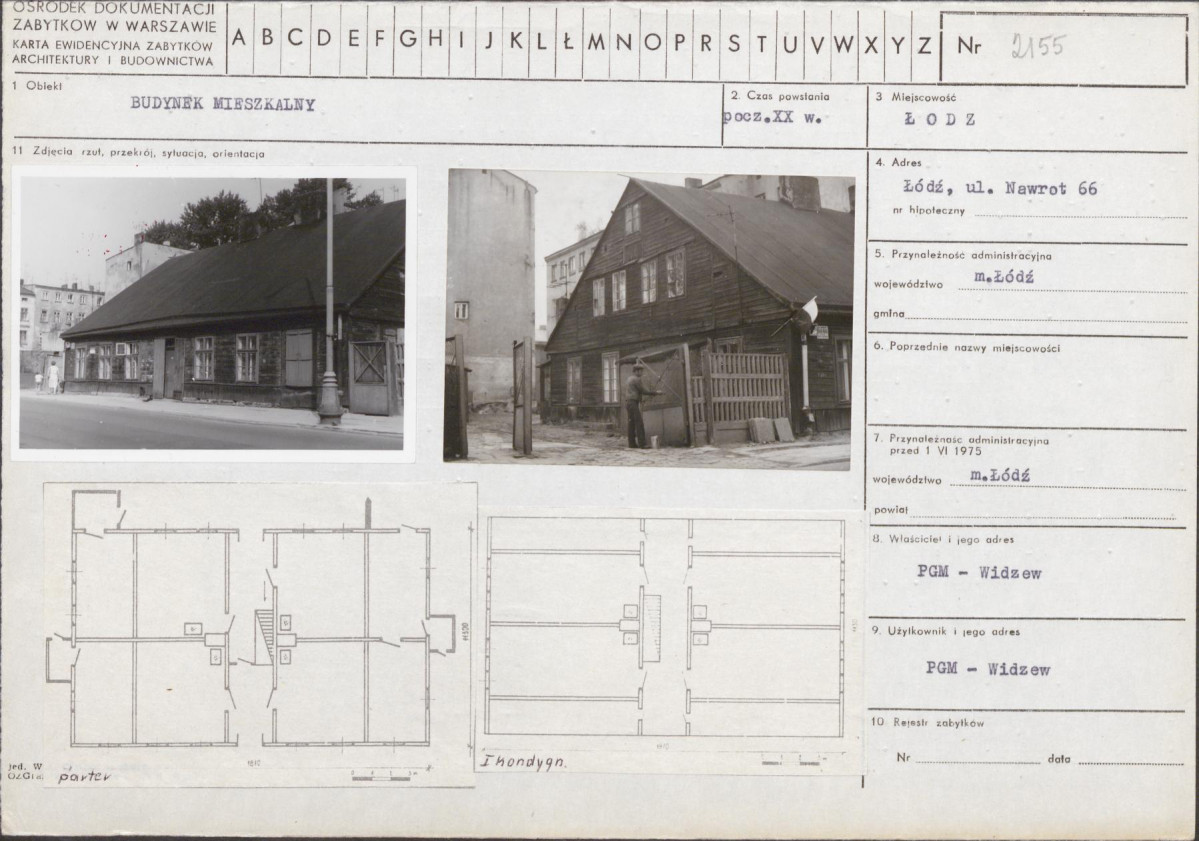 OŚRODEK DOKUMENTACJI
ZABYTKÓW W WARSZAWIE
KARTA EWIDENCYJNA ZABYTKÓW
ARCHITEKTURY I BUDOWNICTWA
A B C D E F G H I J K L Ł M N O P R S T U V W X Y Z
Nr 2155
1 Obiekt
BUDYNEK MIESZKALNY
2. Czas powstania
pocz.XX w.
3 Miejscowość
Ł O D Z
11 Zdjęcia rzut, przekrój, sytuacja, orientacja
4. Adres
Łódź, ul. Nawrot 66
nr hipoteczny
5. Przynależność administracyjna
województwo m.Łódź
gmina
6. Poprzednie nazwy miejscowości
7. Przynależność administracyjna
przed 1 VI 1975
województwo m.Łódź
powiat
8. Właściciel i jego adres
PGM - Widzew
9. Użytkownik i jego adres
PGM - Widzew
10. Rejestr zabytków
Nr data
jed. W
parter
I kondygn.